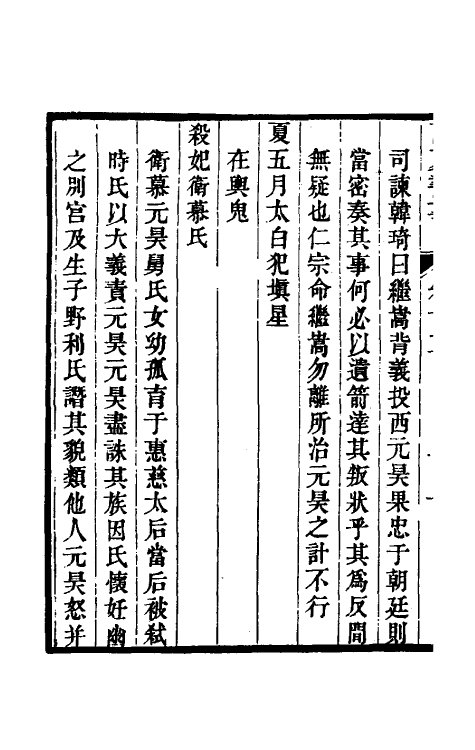 司諫韓琦曰繼嵩背義投西元昊果忠于朝廷則
當密奏其事何必以遺箭達其叛狀乎其爲反間
無疑也仁宗命繼嵩勿離所治元昊之計不行
夏五月太白犯塡星
在輿鬼
殺妃衛慕氏
衛慕元昊舅氏女幼孤育于惠慈太后當后被弑
時氏以大義責元昊元昊盡誅其族因氏懷妊幽
之別宮及生子野利氏譖其貌類他人元昊怒并